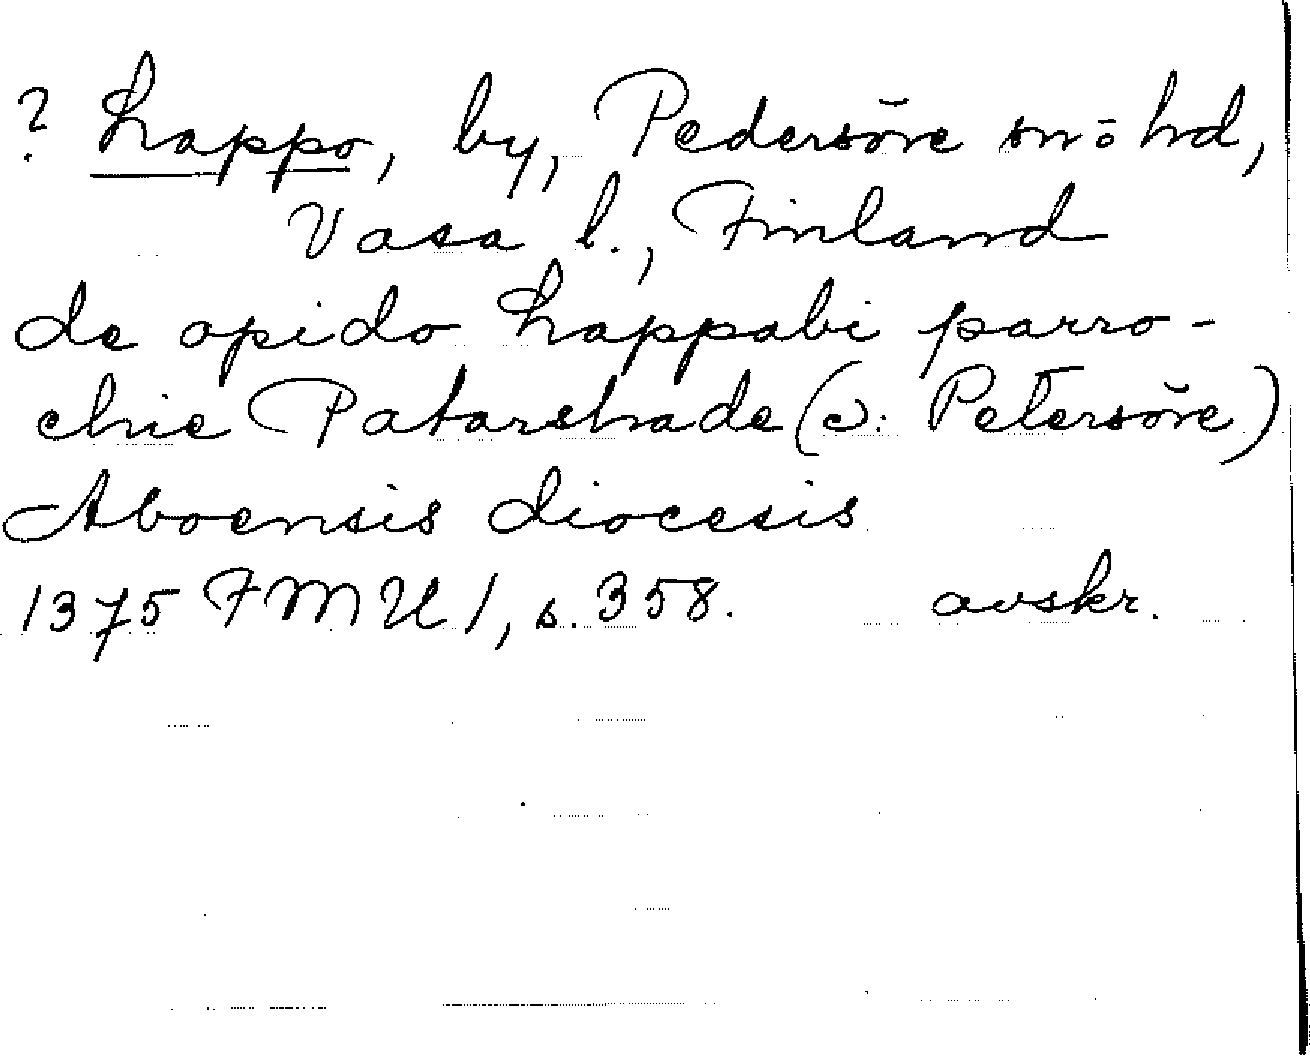 ? Lappo, by, Pedersöre sn o hd,
Vasa l., Finland
de opido Lappabi parro-
chie Patarshade (ɔ: Petersöre)
Aboensis diocesis
1375 FMU 1, s. 358. avskr.